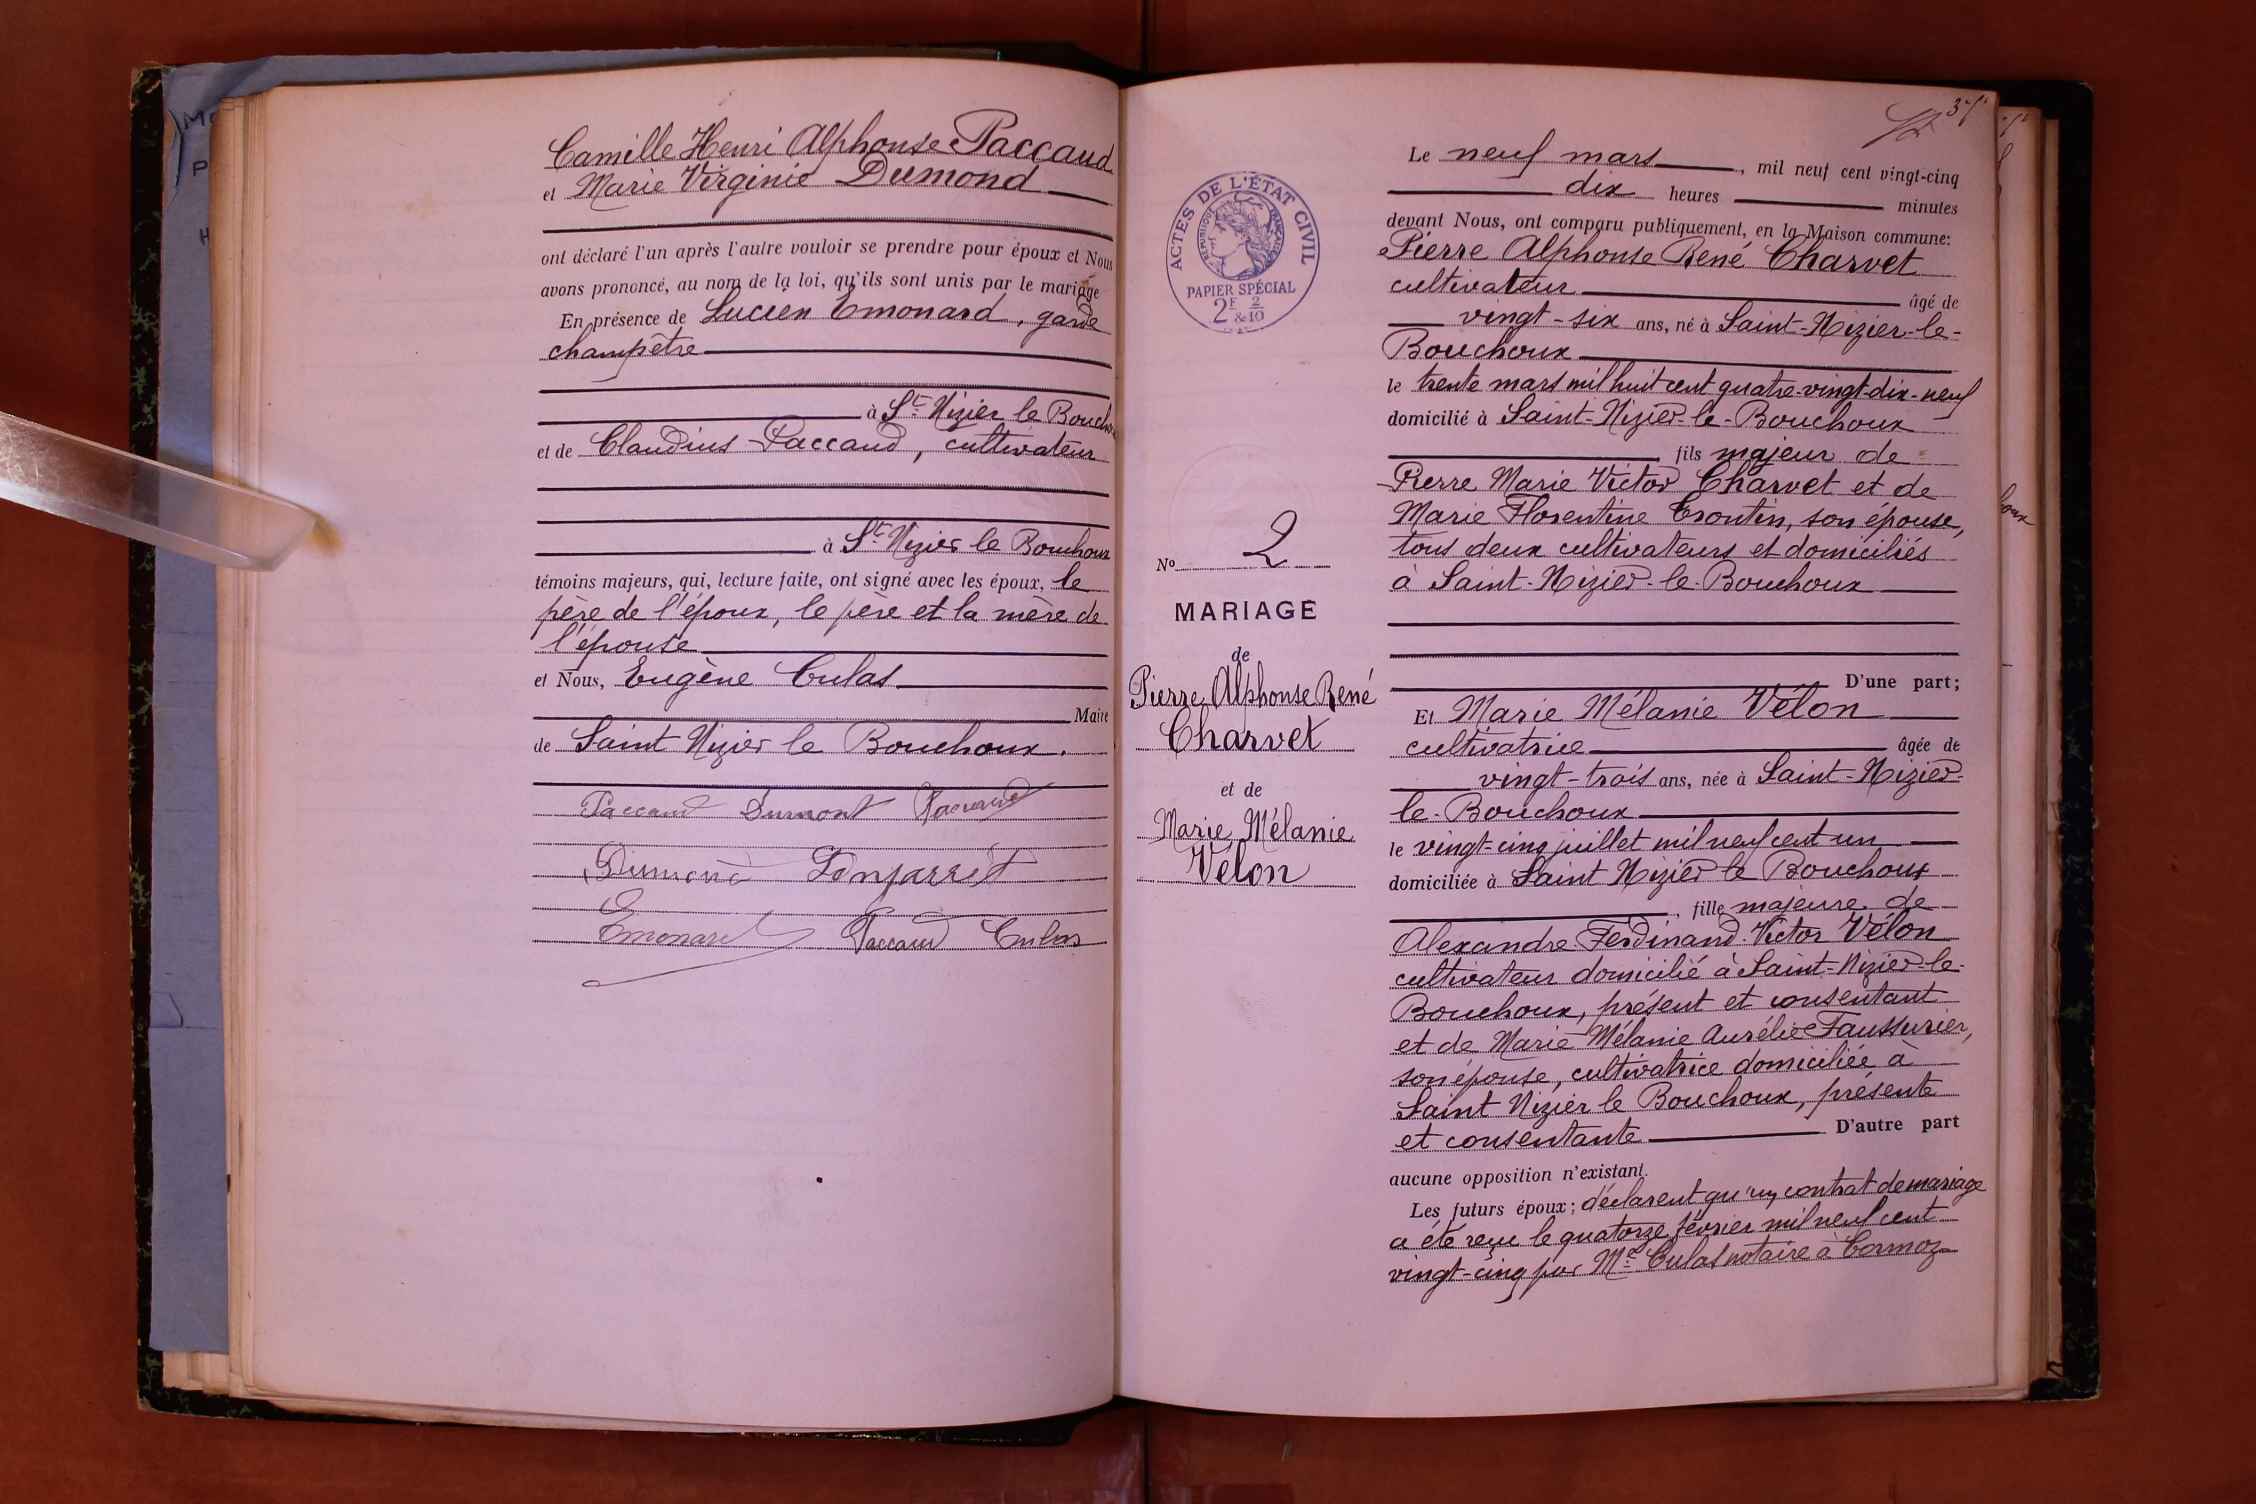 Camille Henri Alphonse Paccaud
et Marie Virginie Dumond
ont déclaré l'un après l'autre vouloir se prendre pour époux et Nous
avons prononcé, au nom de la loi, qu'ils sont unis par le mariage
En présence de Lucien Emonard, garde
champêtre
à St Nizier le Bouchoux
et de Claudius Paccaud, cultivateur
à St Nizier le Bouchoux
témoins majeurs, qui, lecture faite, ont signé avec les époux, le
père de l'époux, le père et la mère de
l'épouse
et Nous, Eugène Culas
Maire
de Saint Nizier le Bouchoux.
Paccaud Dumont Paccaud
Dumond
Emonard Paccaud Culas
37
ACTES DE L'ÉTAT CIVIL
RÉPUBLIQUE FRANÇAISE
PAPIER SPÉCIAL
2F & 2/10
No 2
MARIAGE
de
Pierre Alphonse René
Charvet
et de
Marie Mélanie
Vélon
Le neuf mars, mil neuf cent vingt-cinq
dix heures minutes
devant Nous, ont comparu publiquement, en la Maison commune:
Pierre Alphonse René Charvet
cultivateur âgé de
vingt-six ans, né à Saint-Nizier-le-
Bouchoux
le trente mars mil huit cent quatre-vingt-dix-neuf
domicilié à Saint-Nizier-le-Bouchoux
fils majeur de
Pierre Marie Victor Charvet et de
Marie Florentine Trontin, son épouse,
tous deux cultivateurs et domiciliés
à Saint-Nizier-le-Bouchoux
D'une part;
Et Marie Mélanie Vélon
cultivatrice âgée de
vingt-trois ans, née à Saint-Nizier-
le-Bouchoux
le vingt-cinq juillet mil neuf cent un
domiciliée à Saint Nizier le Bouchoux
, fille majeure de
Alexandre Ferdinand Victor Vélon
cultivateur domicilié à Saint-Nizier-le-
Bouchoux, présent et consentant
et de Marie Mélanie Aurélie Faussurier,
son épouse, cultivatrice domiciliée à
Saint Nizier le Bouchoux, présente
et consentante D'autre part
aucune opposition n'existant.
Les futurs époux; déclarent qu'un contrat de mariage
a été reçu le quatorze février mil neuf cent
vingt-cinq par Me Culas notaire à Cormoz